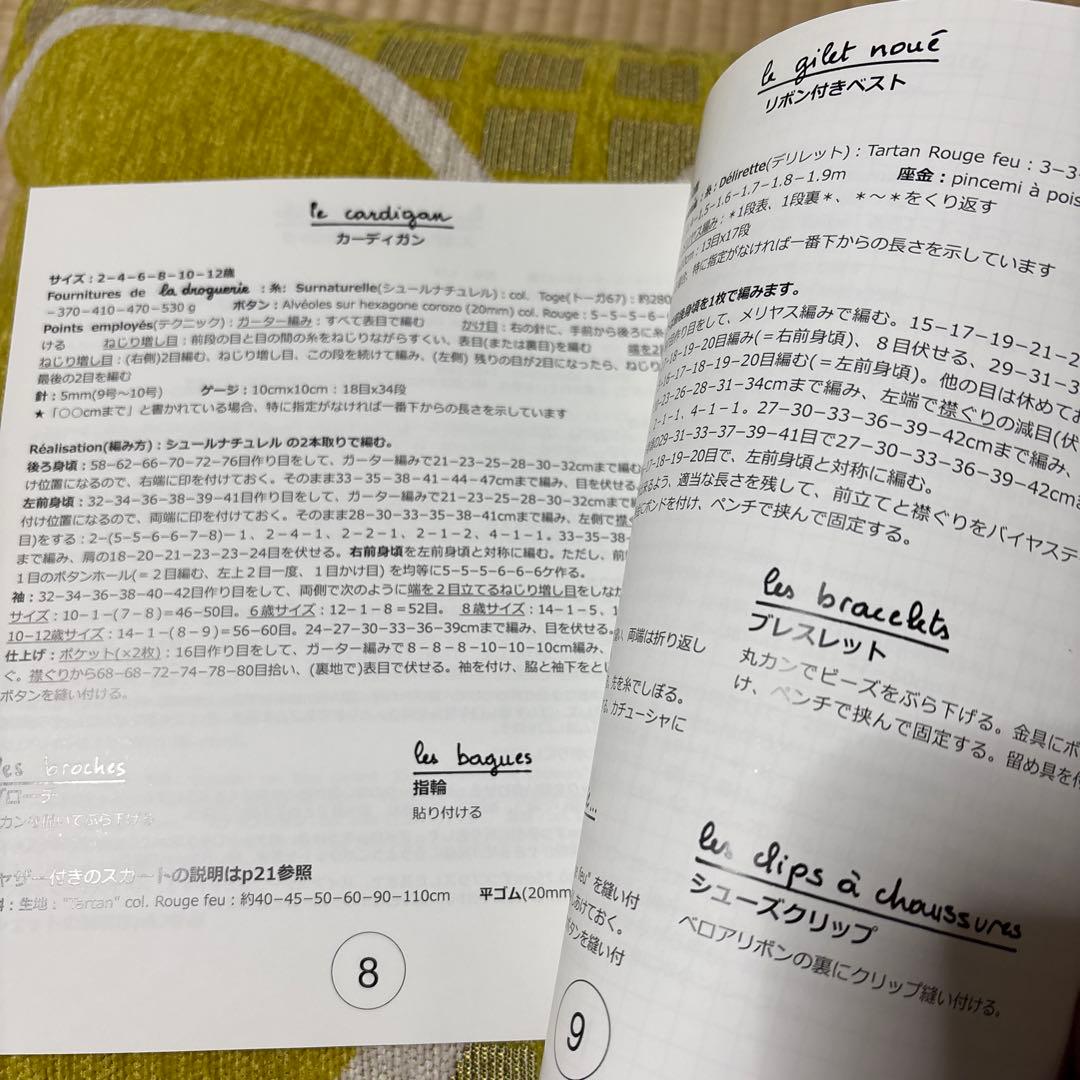 le cardigan
カーディガン
サイズ：2−4−6−8−10−12歳
Fournitures de la droguerie：糸：Surnaturelle(シュールナチュレル)：col. Toge(トーガ67)：約280
−370−410−470−530 g ボタン：Alvéoles sur hexagone corozo (20mm) col. Rouge：5−5−5−6−
Points employés(テクニック)：ガーター編み：すべて表目で編む かけ目：右の針に、手前から後ろに糸
ける ねじり増し目：前段の目と目の間の糸をねじりながらすくい、表目(または裏目)を編む 端を2
ねじり増し目：(右側)2目編む、ねじり増し目、この段を続けて編み、(左側) 残りの目が2目になったら、ねじり
最後の2目を編む
針：5mm(9号〜10号) ゲージ：10cmx10cm：18目x34段
★「〇〇cmまで」と書かれている場合、特に指定がなければ一番下からの長さを示しています
Réalisation(編み方)：シュールナチュレル の2本取りで編む。
後ろ身頃：58−62−66−70−72−76目作り目をして、ガーター編みで21−23−25−28−30−32cmまで編む
け位置になるので、右端に印を付けておく。そのまま33−35−38−41−44−47cmまで編み、目を伏せる
左前身頃：32−34−36−38−39−41目作り目をして、ガーター編みで21−23−25−28−30−32cmまで
付け位置になるので、両端に印を付けておく。そのまま28−30−33−35−38−41cmまで編み、左側で襟ぐ
目)をする：2−(5−5−6−6−7−8)−1、2−4−1、2−2−1、2−1−2、4−1−1。33−35−38−
まで編み、肩の18−20−21−23−23−24目を伏せる。右前身頃を左前身頃と対称に編む。ただし、前
1目のボタンホール(＝2目編む、左上2目一度、1目かけ目) を均等に5−5−5−6−6−6ケ作る。
袖：32−34−36−38−40−42目作り目をして、両側で次のように端を2目立てるねじり増し目をしな
サイズ：10−1−(7−8)＝46−50目。6歳サイズ：12−1−8＝52目。 8歳サイズ：14−1−5、1
10−12歳サイズ：14−1−(8−9)＝56−60目。24−27−30−33−36−39cmまで編み、目を伏せる。
仕上げ：ポケット(×2枚)：16目作り目をして、ガーター編みで8−8−8−10−10−10cm編み、
ぐ。襟ぐりから68−68−72−74−78−80目拾い、(裏地で)表目で伏せる。袖を付け、脇と袖下をとじ
ボタンを縫い付ける。
les broches
ブローチ
カンを開いてぶら下げる
les bagues
指輪
貼り付ける
ャザー付きのスカートの説明はp21参照
：生地："Tartan" col. Rouge feu：約40−45−50−60−90−110cm 平ゴム(20mm)
8
le gilet noué
リボン付きベスト
糸：Délirette(デリレット)：Tartan Rouge feu：3−3−
−1.5−1.6−1.7−1.8−1.9m 座金：pincemi à pois
ヤス編み：＊1段表、1段裏＊、＊〜＊をくり返す
cm：13目x17段
、特に指定がなければ一番下からの長さを示しています
後身頃を1枚で編みます。
作り目をして、メリヤス編みで編む。15−17−19−21−2
−18−19−20目編み(＝右前身頃)、8目伏せる、29−31−3
−16−17−18−19−20目編む(＝左前身頃)。他の目は休めてお
−23−26−28−31−34cmまで編み、左端で襟ぐりの減目(伏
−1−1、4−1−1。27−30−33−36−39−42cmまで編み、
の29−31−33−37−39−41目で27−30−33−36−39−42cmま
−17−18−19−20目で、左前身頃と対称に編む。
るよう、適当な長さを残して、前立てと襟ぐりをバイヤステ
にボンドを付け、ペンチで挟んで固定する。
les bracelets
ブレスレット
丸カンでビーズをぶら下げる。金具にボ
け、ペンチで挟んで固定する。留め具を付
、両端は折り返し
先を糸でしぼる。
カチューシャに
feu" を縫い付
あけておく。
ボタンを縫い付
les clips à chaussures
シューズクリップ
ベロアリボンの裏にクリップ縫い付ける。
9